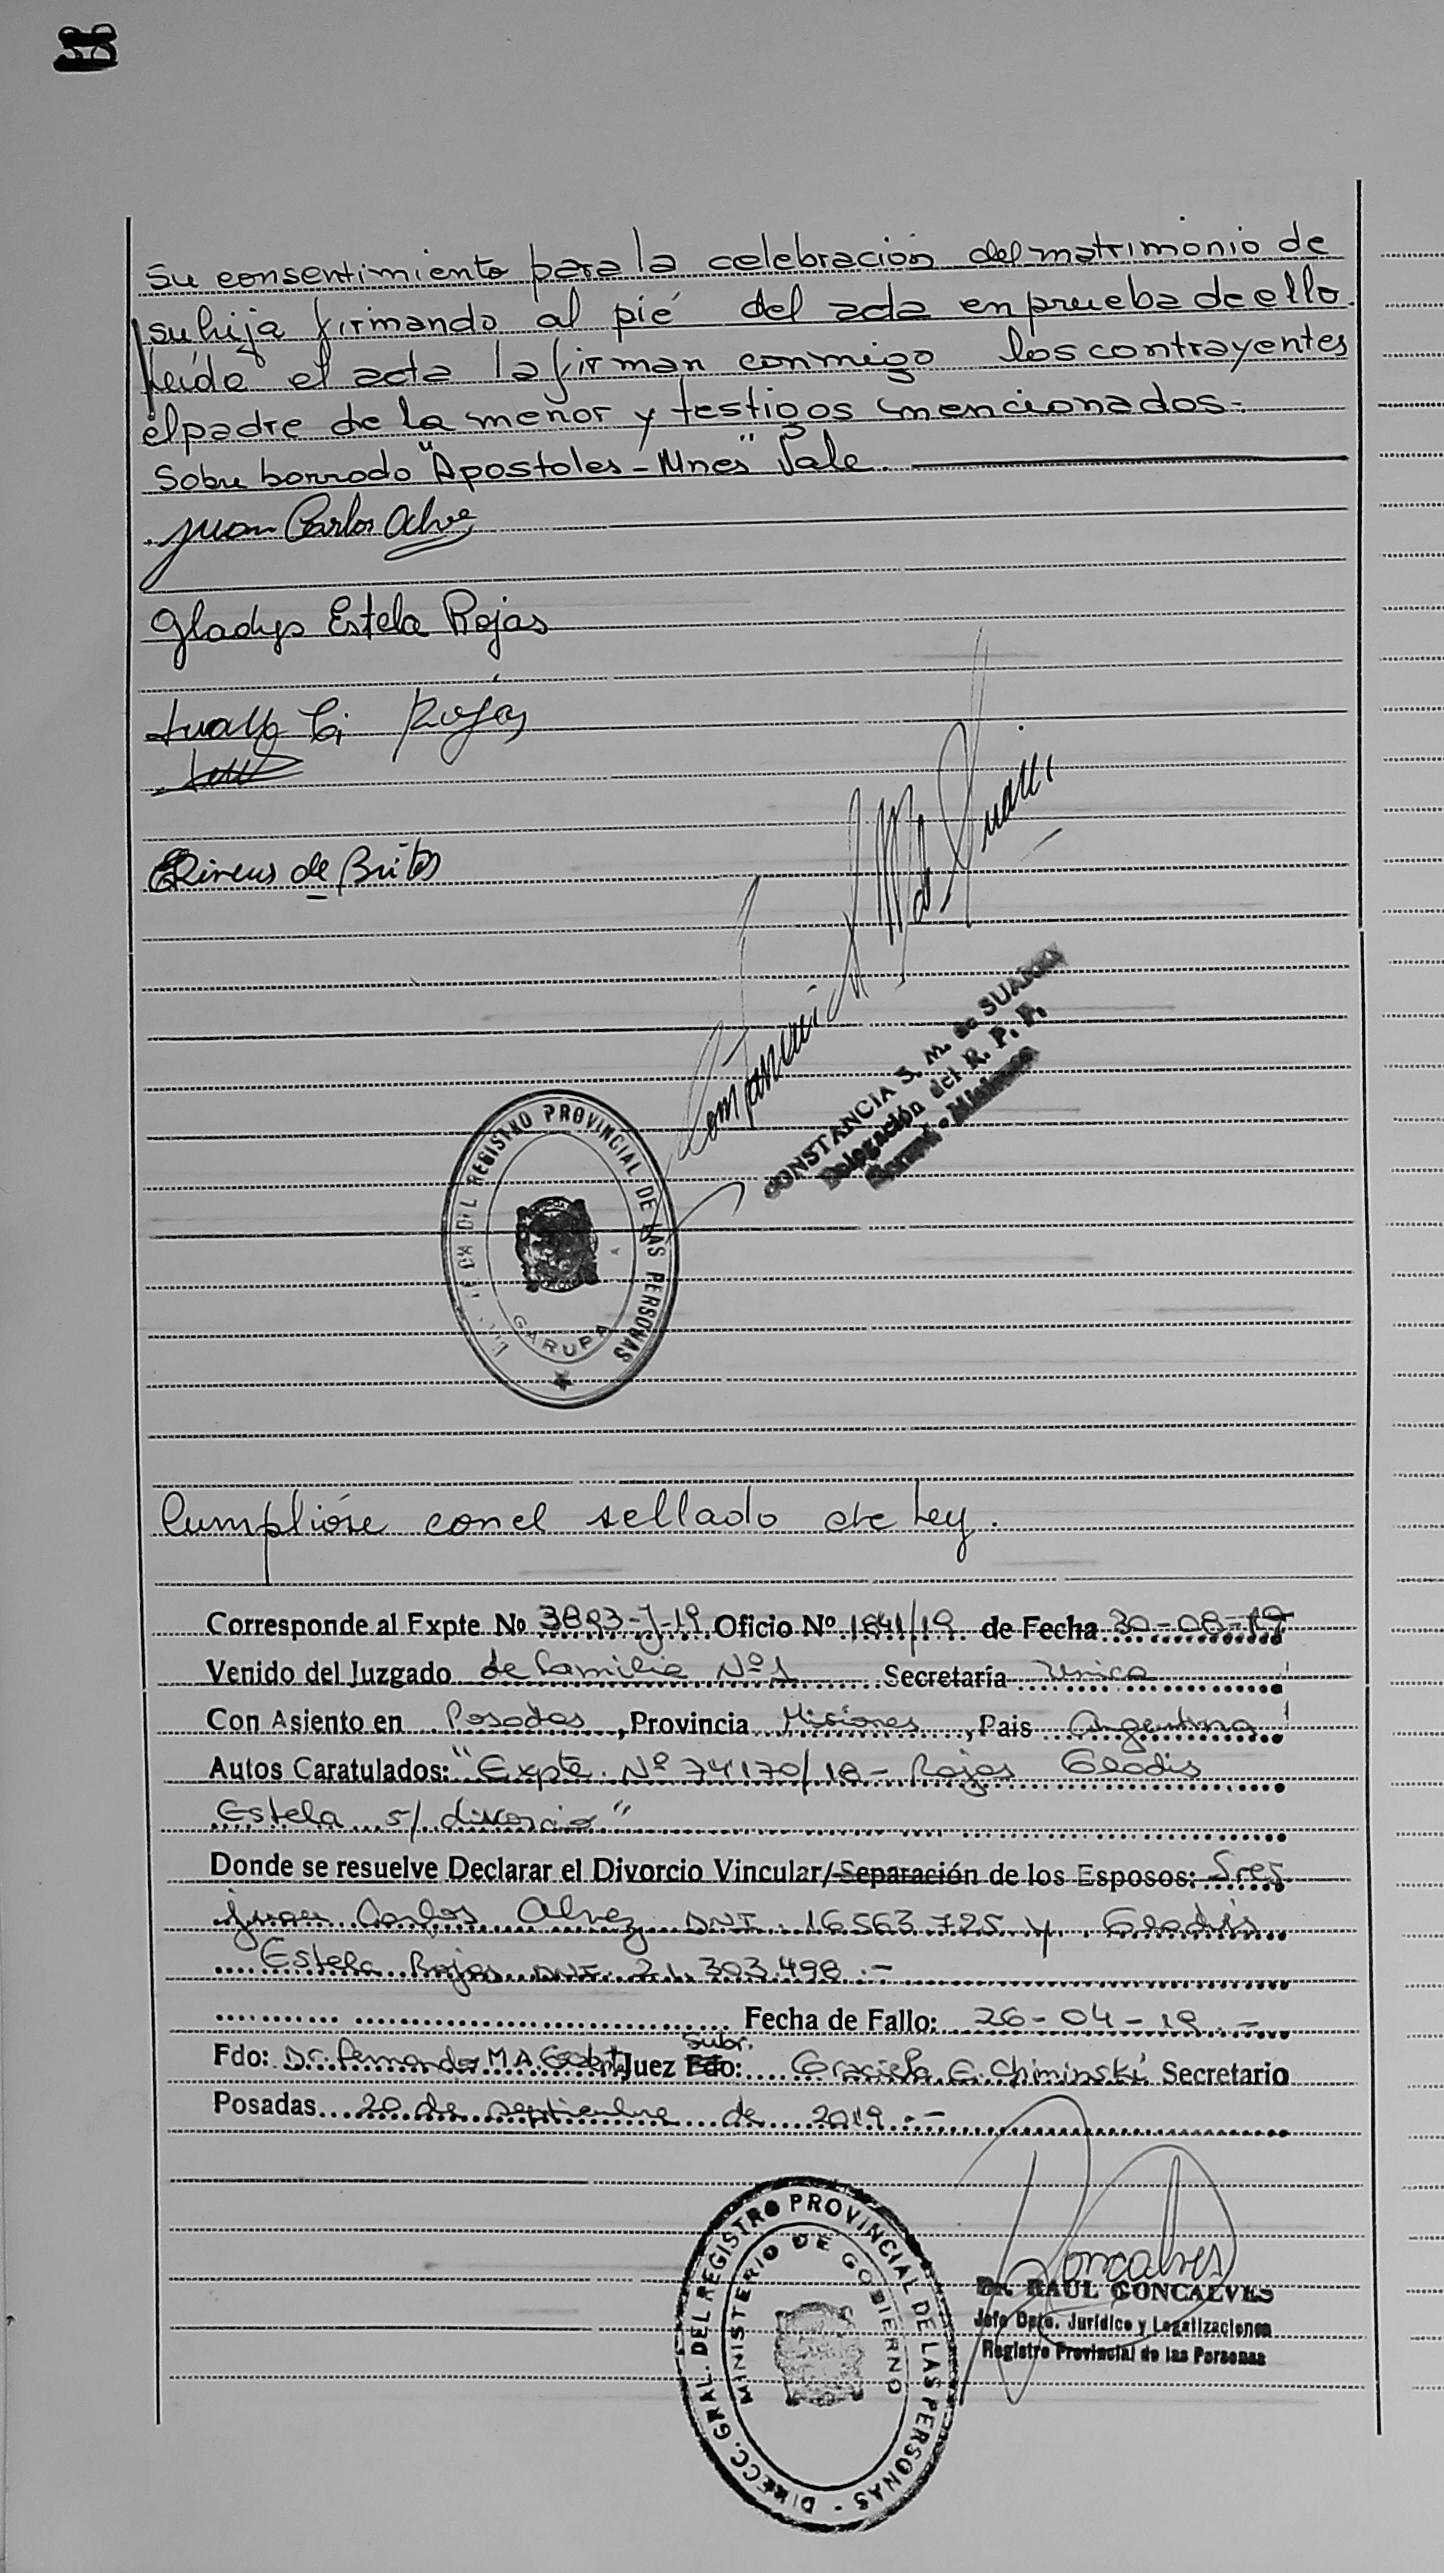 su consentimiento para la celebración del matrimonio de
su hija firmando al pié del acta en prueba de ello.
Leída el acta la firman conmigo los contrayentes
el padre de la menor y testigos mencionados.-
Sobre borrado "Apostoles - Mnes" Vale.
Juan Carlos Alvez
Gladys Estela Rojas
Rojas
de Brites
CONSTANCIA S. M. de SUARES
Delegación del R. P. P.
Garupá - Misiones
REGISTRO PROVINCIAL DE LAS PERSONAS
GARUPA
Cumplióse con el sellado de Ley.
Corresponde al Expte Nº 3893-J-19 Oficio Nº 1841/19 de Fecha 30-08-19
Venido del Juzgado de Familia Nº1 Secretaría Unica
Con Asiento en Posadas, Provincia Misiones, Pais Argentina
Autos Caratulados: "Expte. Nº 74170/18 - Rojas Gladis
Estela s/ divorcio"
Donde se resuelve Declarar el Divorcio Vincular/Separación de los Esposos: Sres
Juan Carlos Alvez DNI. 16.563.725 y Gladis
Estela Rojas DNI. 21.303.498.-
Fecha de Fallo: 26-04-19.-
Subr.
Fdo: Dr. Fernando M.A. Juez Fdo: Graciela E. Chiminski Secretario
Posadas 20 de septiembre de 2019.-
Goncalves
Dr. RAUL GONCALVES
Jefe Dpto. Jurídico y Legalizaciones
Registro Provincial de las Personas
DIRECC. GRAL. DEL REGISTRO PROVINCIAL DE LAS PERSONAS -
MINISTERIO DE GOBIERNO